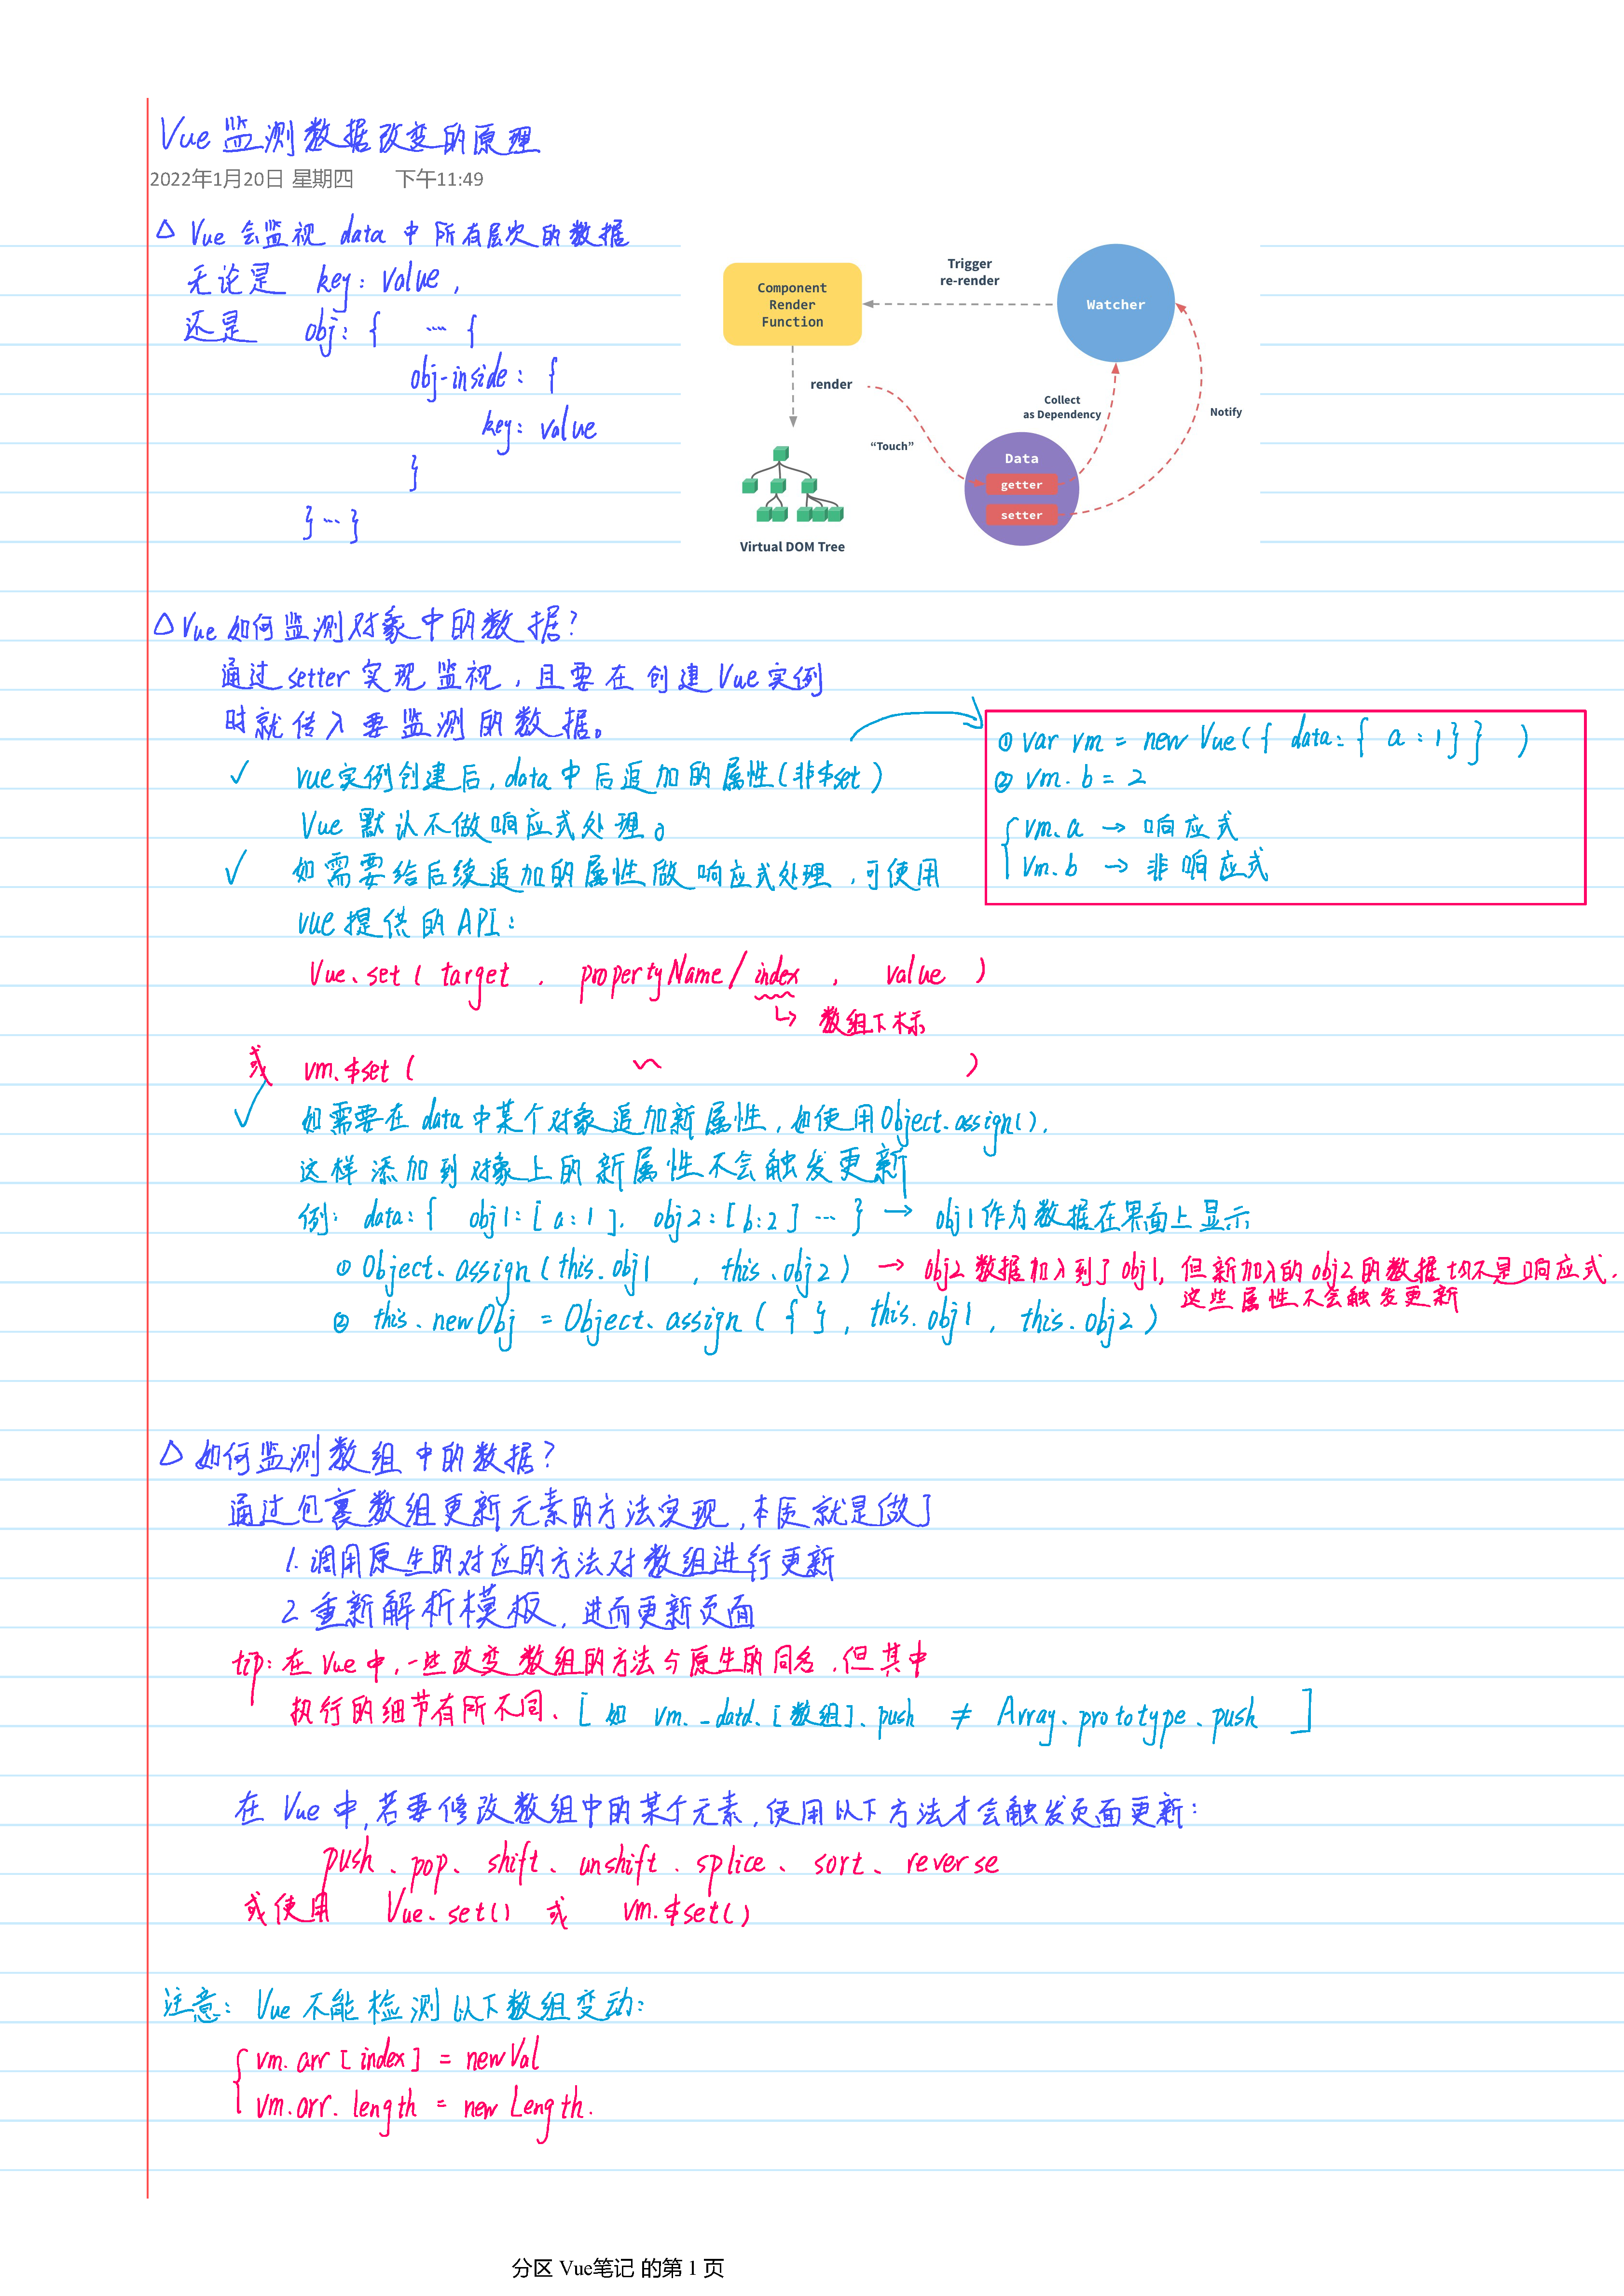 Vue 监测数据改变的原理
2022年1月20日 星期四 下午11:49
△ Vue 会监视 data 中 所有层次的数据
无论是 key: value,
还是 obj: { ... {
obj-inside: {
key: value
}
} ... }
Component
Render
Function
Trigger
re-render
Watcher
render
Collect
as Dependency
Notify
“Touch”
Data
getter
setter
Virtual DOM Tree
△ Vue 如何监测对象中的数据?
通过 setter 实现监视, 且要在创建 Vue 实例
时就传入要监测的数据。
✓ vue实例创建后, data 中后追加的属性(非$set)
Vue 默认不做响应式处理。
✓ 如需要给后续追加的属性做响应式处理, 可使用
vue 提供的 API:
① var vm = new Vue({ data: { a : 1}} )
② vm.b = 2
{ vm.a → 响应式
vm.b → 非响应式
Vue.set( target , propertyName/index , value )
↳ 数组下标
或 vm.$set( ~ )
✓ 如需要在 data 中某个对象追加新属性, 如使用Object.assign(),
这样添加到对象上的新属性不会触发更新
例: data: { obj1: [ a: 1 ], obj2: [ b: 2 ] ... } → obj1作为数据在界面上显示
① Object.assign(this.obj1 , this.obj2) → obj2 数据加入到了obj1, 但新加入的obj2的数据均不是响应式,
这些属性不会触发更新
② this.newObj = Object.assign( { }, this.obj1, this.obj2 )
△ 如何监测数组中的数据?
通过包裹数组更新元素的方法实现, 本质就是做了
1. 调用原生的对应的方法对数组进行更新
2 重新解析模板, 进而更新页面
tip: 在 Vue 中, 一些改变数组的方法与原生的同名, 但其中
执行的细节有所不同、[ 如 vm._datd.[数组].push ≠ Array.prototype.push ]
在 Vue 中,若要修改数组中的某个元素, 使用以下方法才会触发页面更新:
push、pop、shift、unshift、splice、sort、reverse
或使用 Vue.set() 或 vm.$set()
注意: Vue 不能检测以下数组变动:
{ vm.arr[index] = newVal
vm.arr.length = newLength.
分区 Vue笔记 的第 1 页